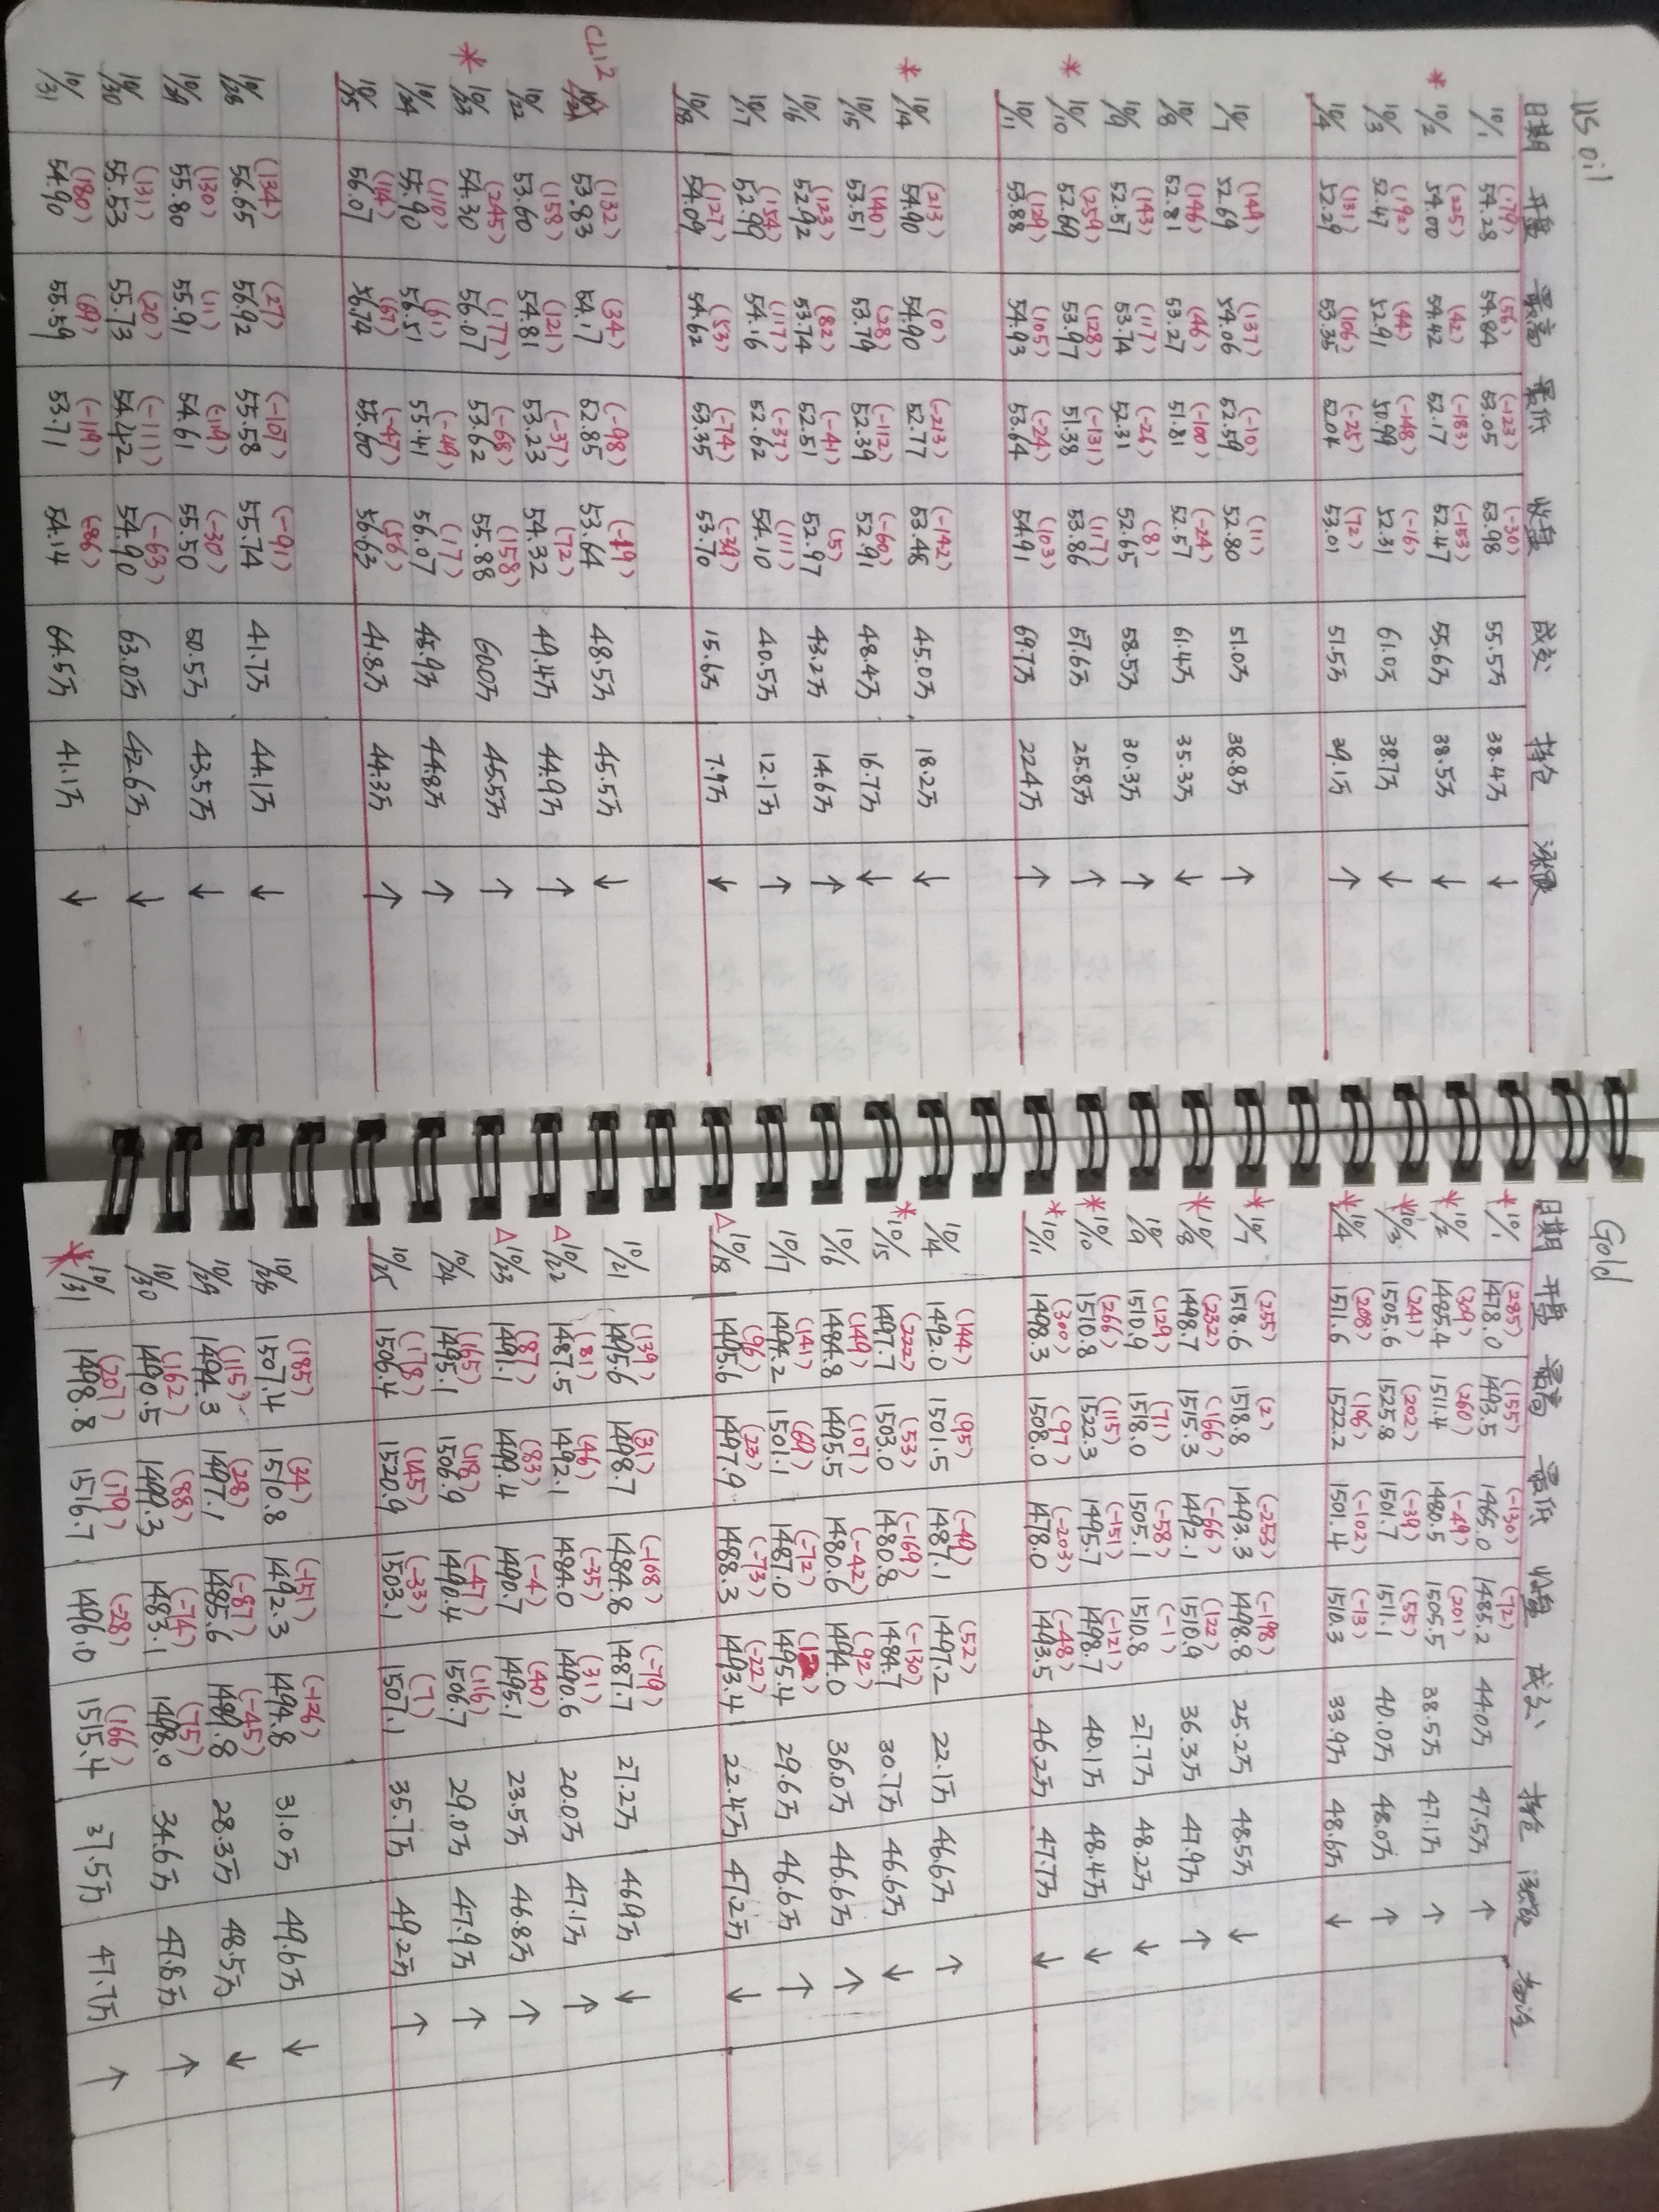 US oil
日期 开盘 最高 最低 收盘 成交 持仓 涨跌
(179) (56) (-123) (-30)
10/1 54.28 54.84 53.05 53.98 55.5万 38.4万 ↓
(225) (42) (-183) (-153)
* 10/2 54.00 54.42 52.17 52.47 55.6万 38.5万 ↓
(192) (44) (-148) (-16)
10/3 52.47 52.91 50.99 52.31 61.0万 38.7万 ↓
(131) (106) (-25) (72)
10/4 52.29 53.35 52.04 53.01 51.5万 39.1万 ↑
(149) (137) (-10) (11)
10/7 52.69 54.06 52.59 52.80 51.0万 38.8万 ↑
(146) (46) (-100) (-24)
10/8 52.81 53.27 51.81 52.57 61.4万 35.3万 ↓
(143) (117) (-26) (8)
10/9 52.57 53.74 52.31 52.65 58.5万 30.3万 ↑
(259) (128) (-131) (117)
* 10/10 52.69 53.97 51.38 53.86 67.6万 25.8万 ↑
(129) (105) (-24) (103)
10/11 53.88 54.93 53.64 54.91 69.7万 22.4万 ↑
(213) (0) (-213) (-142)
* 10/14 54.90 54.90 52.77 53.46 45.0万 18.2万 ↓
(140) (28) (-112) (-60)
10/15 53.51 53.79 52.39 52.91 48.4万 16.7万 ↓
(123) (82) (-41) (5)
10/16 52.92 53.74 52.51 52.97 43.2万 14.6万 ↑
(154) (117) (-37) (111)
10/17 52.99 54.16 52.62 54.10 40.5万 12.1万 ↑
(127) (53) (-74) (-39)
10/18 54.09 54.62 53.35 53.70 15.6万 7.9万 ↓
CL12
(132) (34) (-98) (-19)
10/21 53.83 54.17 52.85 53.64 48.5万 45.5万 ↓
(158) (121) (-37) (72)
10/22 53.60 54.81 53.23 54.32 49.4万 44.9万 ↑
(245) (177) (-68) (158)
* 10/23 54.30 56.07 53.62 55.88 60.0万 45.5万 ↑
(110) (61) (-49) (17)
10/24 55.90 56.51 55.41 56.07 45.9万 44.8万 ↑
(114) (67) (-47) (56)
10/25 56.07 56.74 55.60 56.63 41.8万 44.3万 ↑
(134) (27) (-107) (-91)
10/28 56.65 56.92 55.58 55.74 41.7万 44.1万 ↓
(130) (11) (-119) (-30)
10/29 55.80 55.91 54.61 55.50 50.5万 43.5万 ↓
(131) (20) (-111) (-63)
10/30 55.53 55.73 54.42 54.90 63.0万 42.6万 ↓
(180) (69) (-119) (-86)
10/31 54.90 55.59 53.71 54.14 64.5万 41.1万 ↓
Gold
日期 开盘 最高 最低 收盘 成交 持仓 涨跌 备注
(285) (155) (-130) (72)
*10/1 1478.0 1493.5 1465.0 1485.2 44.0万 47.5万 ↑
(309) (260) (-49) (201)
*10/2 1485.4 1511.4 1480.5 1505.5 38.5万 47.1万 ↑
(241) (202) (-39) (55)
*10/3 1505.6 1525.8 1501.7 1511.1 40.0万 48.0万 ↑
(208) (106) (-102) (-13)
*10/4 1511.6 1522.2 1501.4 1510.3 33.9万 48.6万 ↓
(255) (2) (-253) (-198)
*10/7 1518.6 1518.8 1493.3 1498.8 25.2万 48.5万 ↓
(232) (166) (-66) (122)
*10/8 1498.7 1515.3 1492.1 1510.9 36.3万 47.9万 ↑
(129) (71) (-58) (-1)
10/9 1510.9 1518.0 1505.1 1510.8 27.7万 48.2万 ↓
(266) (115) (-151) (-121)
*10/10 1510.8 1522.3 1495.7 1498.7 40.1万 48.4万 ↓
(300) (97) (-203) (-48)
*10/11 1498.3 1508.0 1478.0 1493.5 46.2万 47.7万 ↓
(144) (95) (-49) (52)
10/14 1492.0 1501.5 1487.1 1497.2 22.1万 46.6万 ↑
(222) (53) (-169) (-130)
*10/15 1497.7 1503.0 1480.8 1484.7 30.7万 46.6万 ↓
(149) (107) (-42) (92)
10/16 1484.8 1495.5 1480.6 1494.0 36.0万 46.6万 ↑
(141) (69) (-72)
10/17 1494.2 1501.1 1487.0 1495.4 29.6万 46.6万 ↑
(96) (23) (-73) (-22)
△10/18 1495.6 1497.9 1488.3 1493.4 22.4万 47.2万 ↓
(139) (31) (-108) (-79)
10/21 1495.6 1498.7 1484.8 1487.7 27.2万 46.9万 ↓
(81) (46) (-35) (31)
△10/22 1487.5 1492.1 1484.0 1490.6 20.0万 47.1万 ↑
(87) (83) (-4) (40)
△10/23 1491.1 1499.4 1490.7 1495.1 23.5万 46.8万 ↑
(165) (118) (-47) (116)
10/24 1495.1 1506.9 1490.4 1506.7 29.0万 47.9万 ↑
(178) (145) (-33) (7)
10/25 1506.4 1520.9 1503.1 1507.1 35.7万 49.2万 ↑
(185) (34) (-151) (-126)
10/28 1507.4 1510.8 1492.3 1494.8 31.0万 49.6万 ↓
(115) (28) (-87) (-45)
10/29 1494.3 1497.1 1485.6 1489.8 28.3万 48.5万 ↓
(162) (88) (-74) (75)
10/30 1490.5 1499.3 1483.1 1498.0 34.6万 47.8万 ↑
(207) (179) (-28) (166)
*10/31 1498.8 1516.7 1496.0 1515.4 37.5万 47.7万 ↑